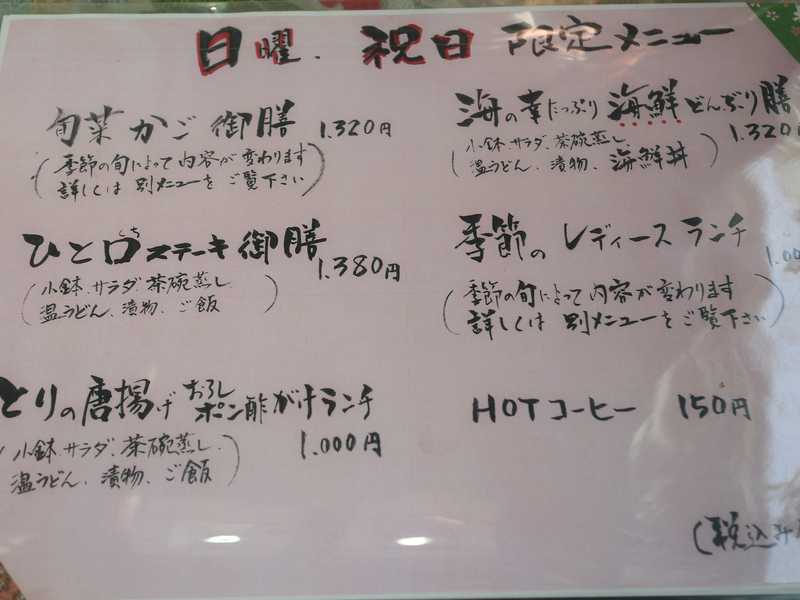 日曜.祝日 限定メニュー
旬菜かご御膳 1.320円
(季節の旬によって内容が変わります
詳しくは別メニューをご覧下さい)
ひと口ステーキ御膳
くち
1.380円
(小鉢、サラダ、茶碗蒸し、
温うどん、漬物、ご飯)
とりの唐揚げおろしポン酢がけランチ
1.000円
小鉢、サラダ、茶碗蒸し、
温うどん、漬物、ご飯)
海の幸たっぷり海鮮どんぶり膳
1.320
(小鉢、サラダ、茶碗蒸し、
温うどん、漬物、海鮮丼)
季節のレディースランチ
1.00
(季節の旬によって内容が変わります
詳しくは別メニューをご覧下さい)
HOTコーヒー 150円
(税込み